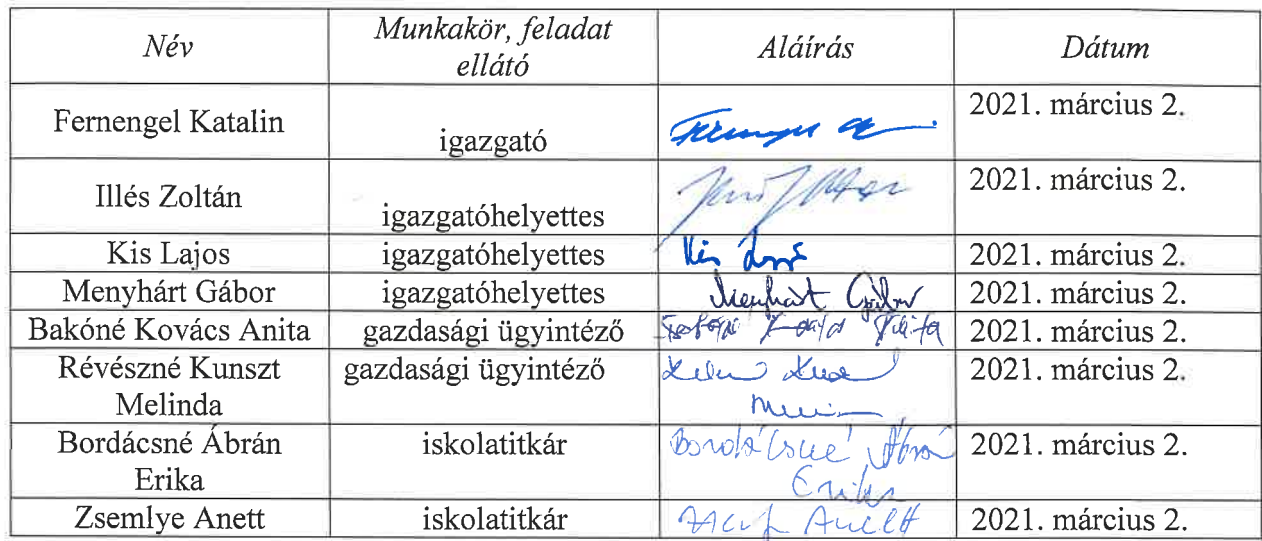 Név Munkakör, feladat ellátó Aláírás Dátum
Fernengel Katalin igazgató 2021. március 2.
Illés Zoltán igazgatóhelyettes 2021. március 2.
Kis Lajos igazgatóhelyettes Kis 2021. március 2.
Menyhárt Gábor igazgatóhelyettes Menyhárt Gábor 2021. március 2.
Bakóné Kovács Anita gazdasági ügyintéző 2021. március 2.
Révészné Kunszt Melinda gazdasági ügyintéző 2021. március 2.
Bordácsné Ábrán Erika iskolatitkár Bordácsné Erika 2021. március 2.
Zsemlye Anett iskolatitkár Anett 2021. március 2.